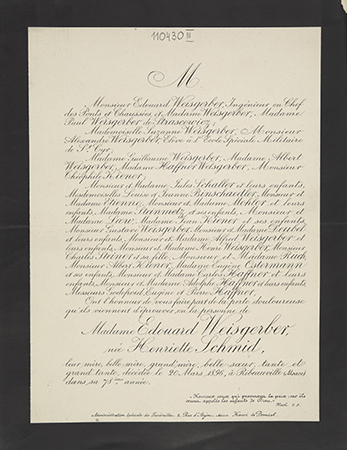 110430 III
M
Monsieur Edouard Weisgerber, Ingénieur en Chef
des Ponts et Chaussées et Madame Weisgerber, Madame
Paul Weisgerber de
Mademoiselle Suzanne Weisgerber, Monsieur
Alexandre Weisgerber, Elève à l'Ecole Spéciale Militaire
de St Cyr,
Madame Guillaume Weisgerber, Madame Albert
Weisgerber, Madame Haffner Weisgerber, Monsieur
Théophile Kiener,
Monsieur et Madame Jules Schaller et leurs enfants,
Mesdemoiselles Louise et Jeanne Monsieur et
Madame Etienne, Monsieur et Madame Mohler et leurs
enfants, Madame et ses enfants, Monsieur et
Madame Monsieur et Madame Jean Kiener et ses enfants,
Monsieur Gustave Weisgerber, Monsieur et Madame
et leurs enfants, Monsieur et Madame Alfred Weisgerber et
leurs enfants, Monsieur et Madame Henri Weisgerber, Monsieur
Charles Steiner et sa fille, Monsieur et Madame
Monsieur Albert Kiener, Madame Eugène Ostermann
et ses enfants, Monsieur et Madame Carlos Haffner et leurs
enfants, Monsieur et Madame Adolphe Haffner et leurs enfants,
Messieurs Godefroid, Eugène et Jules Haffner,
Ont l'honneur de vous faire part de la perte douloureuse
qu'ils viennent d'éprouver en la personne de
Madame Edouard Weisgerber,
née Henriette Schmid,
leur mère, belle mère, grand'mère, belle sœur, tante et
grand'tante, décédée le 20 Mars 1896, à Ribeauvillé (Alsace)
dans sa 78ème année.
Heureux ceux qui procurent la paix, car ils
seront appelés les enfants de Dieu.
Math. V. 9.
Administration Spéciale de Funérailles, 2 Rue d'Anjou, Maison Henri de Borniol